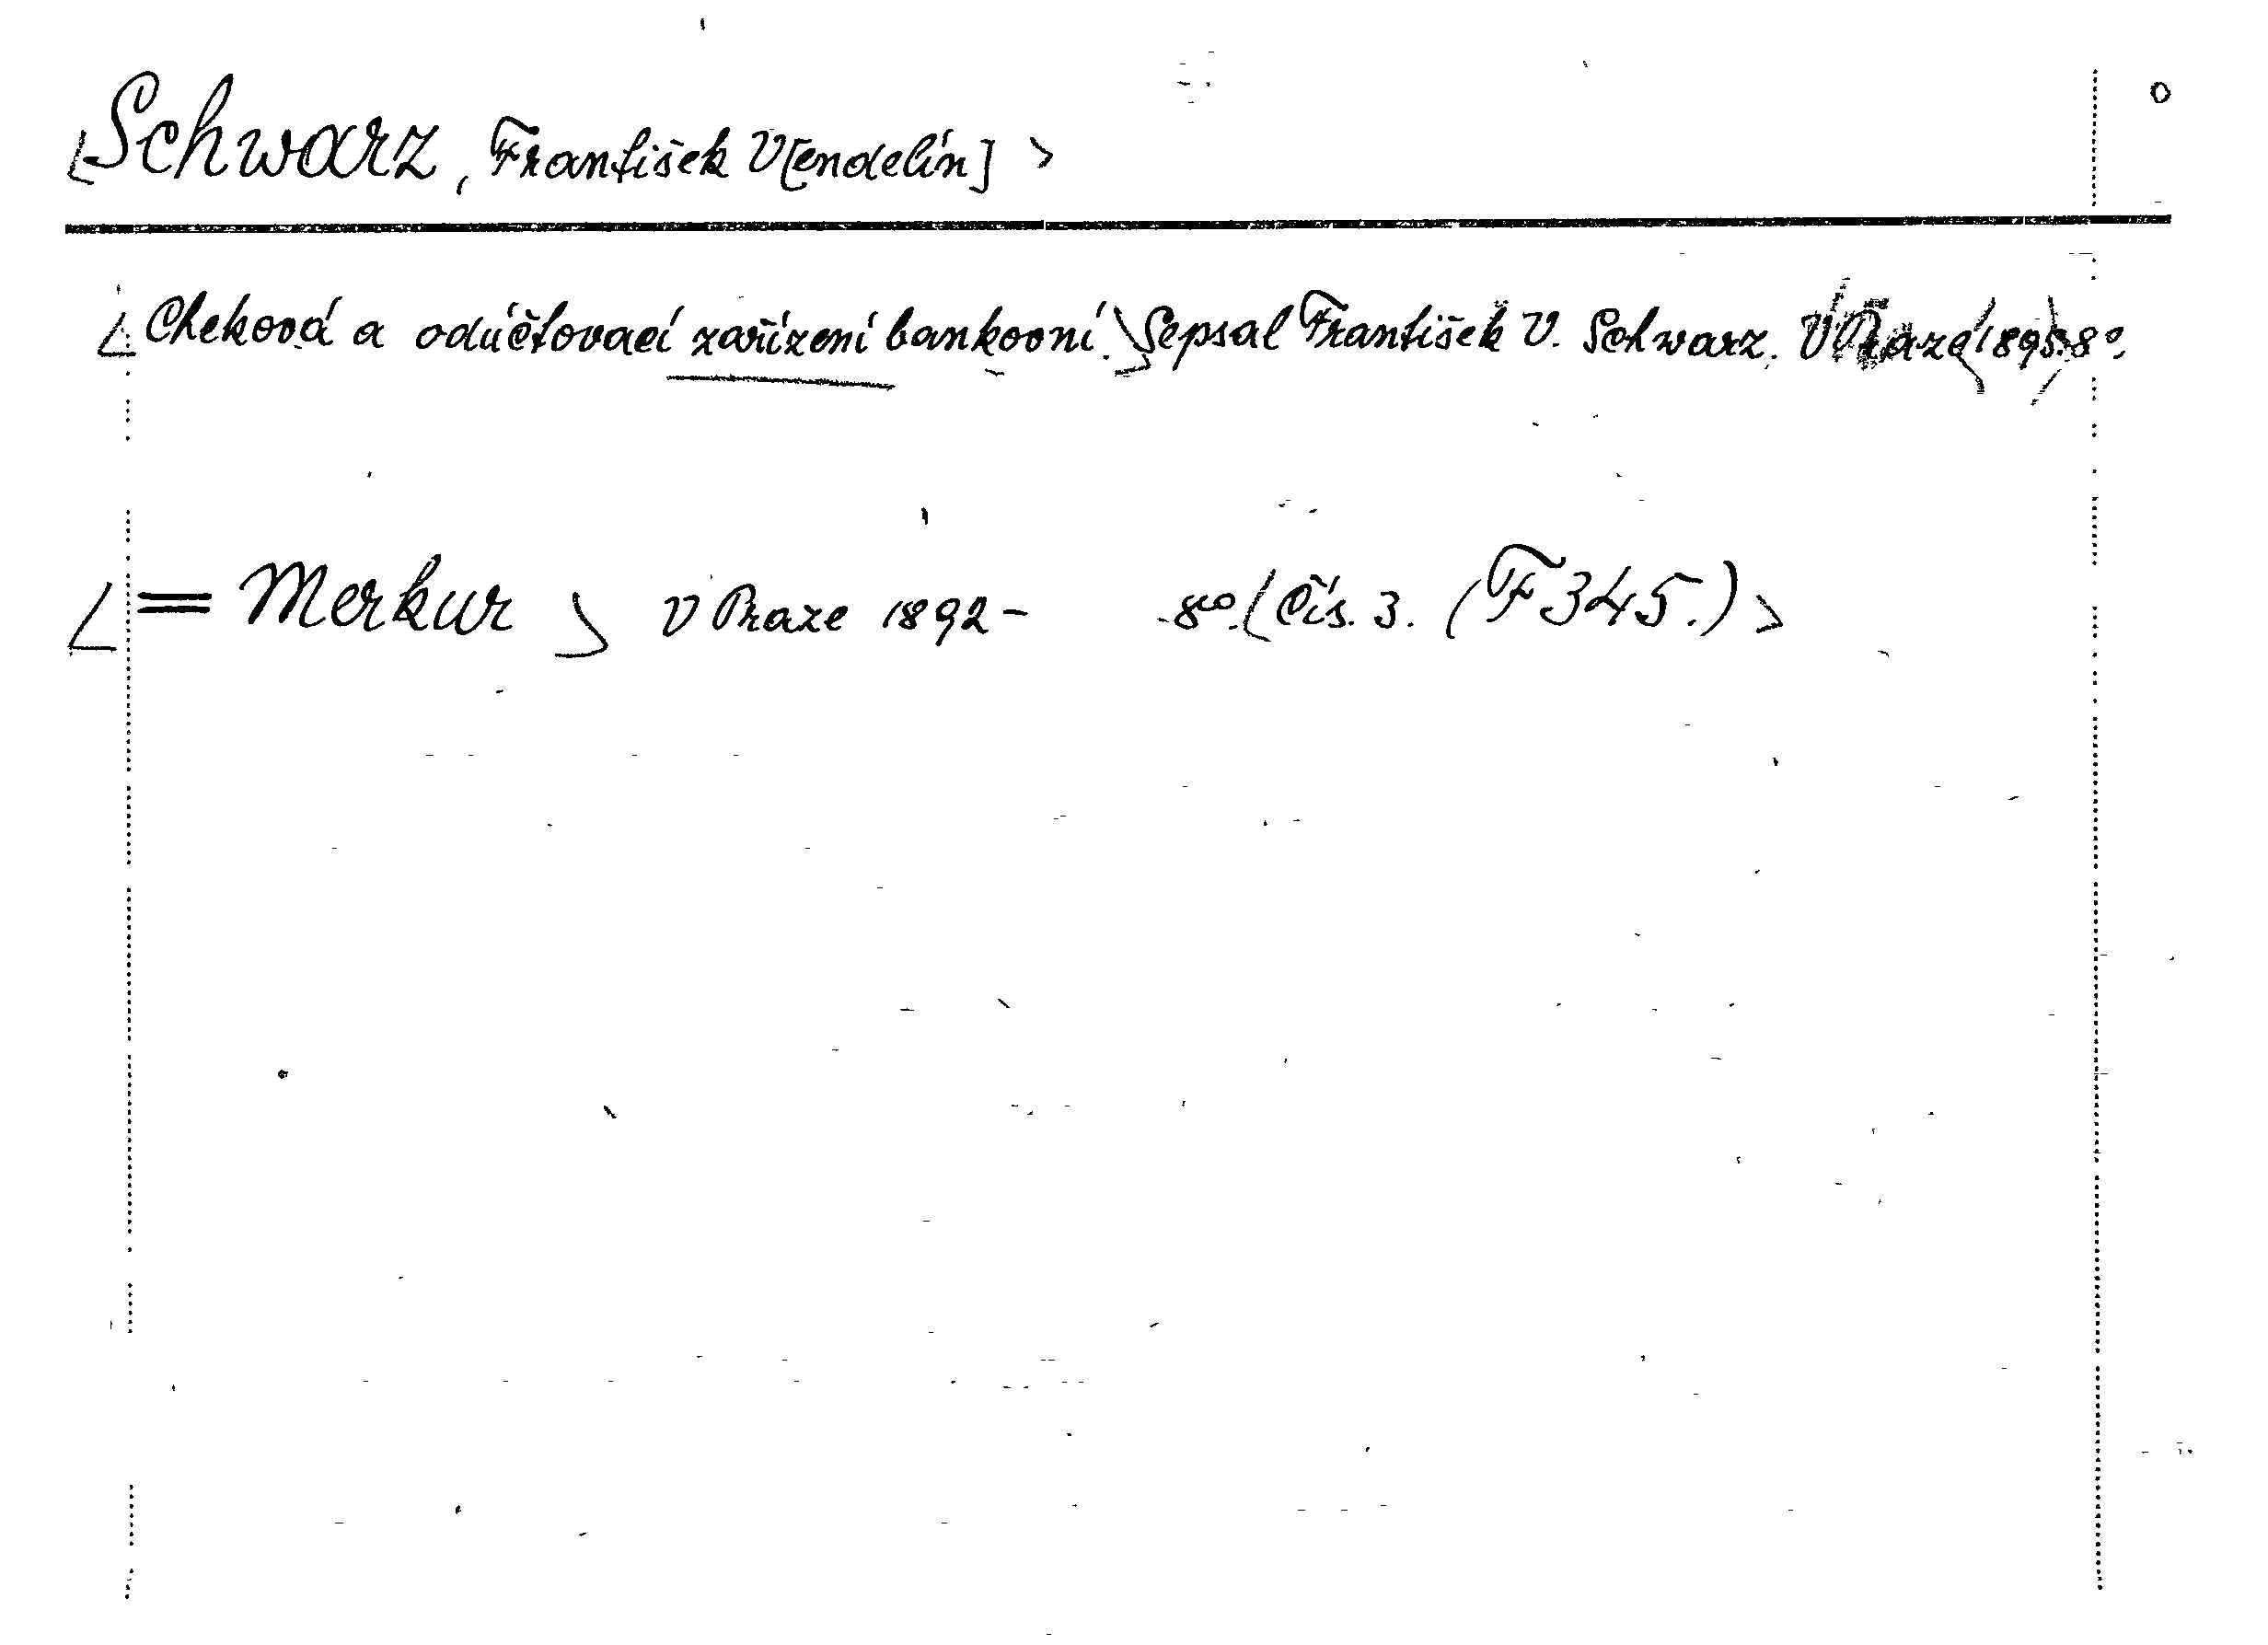 <Schwarz, František V[endelín]> o
<Cheková a odúčtovací zařízení bankovní.> Sepsal František V. Schwarz. V Praze <1895.> 8º.
<= Merkur> V Praze 1892 - 8º. <Čís. 3. (F 345.)>